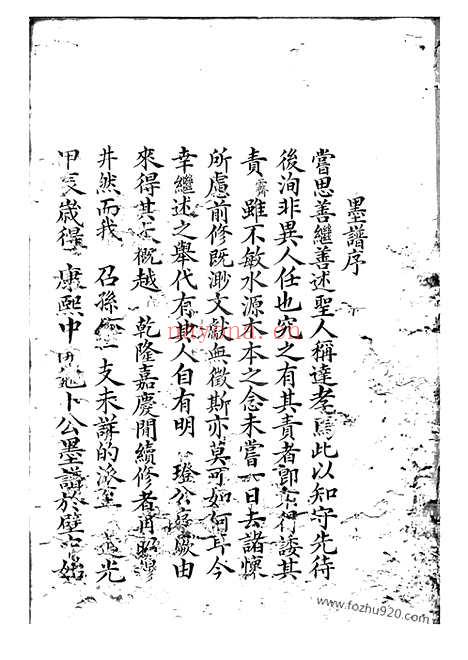 墨譜序
嘗思善繼善述聖人稱達孝焉此以知守先待
後洵非異人任也究之有其責者即不得諉其
責 霽雖不敏水源木本之念未嘗一日去諸懷
所慮前修既渺文獻無徵斯亦莫可如何耳今
幸繼述之舉代有由人自有明 璒公厥由
來得其大概越 乾隆嘉慶間續修者昭穆
井然而我 召孫支未詳的派至 光
甲辰歲得 康熙中公墨譜於壁中始
nayona.cn
www.fozhu920.com